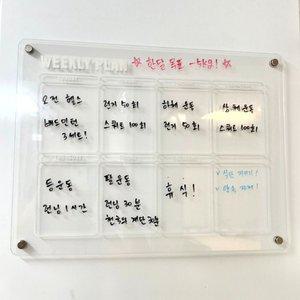 WEEKLY PLAN
☆ 한달 목표 -5kg! ☆
오전 헬스
배드민턴
3세트!
런지 50회
스쿼트 100회
하체 운동
런지 50회
상체 운동
스쿼트 100회
등운동
런닝 1시간
팔 운동
런닝 30분
천국의 계단 30분
휴식!
✓ 식단 지키기!
✓ 야식 자제!